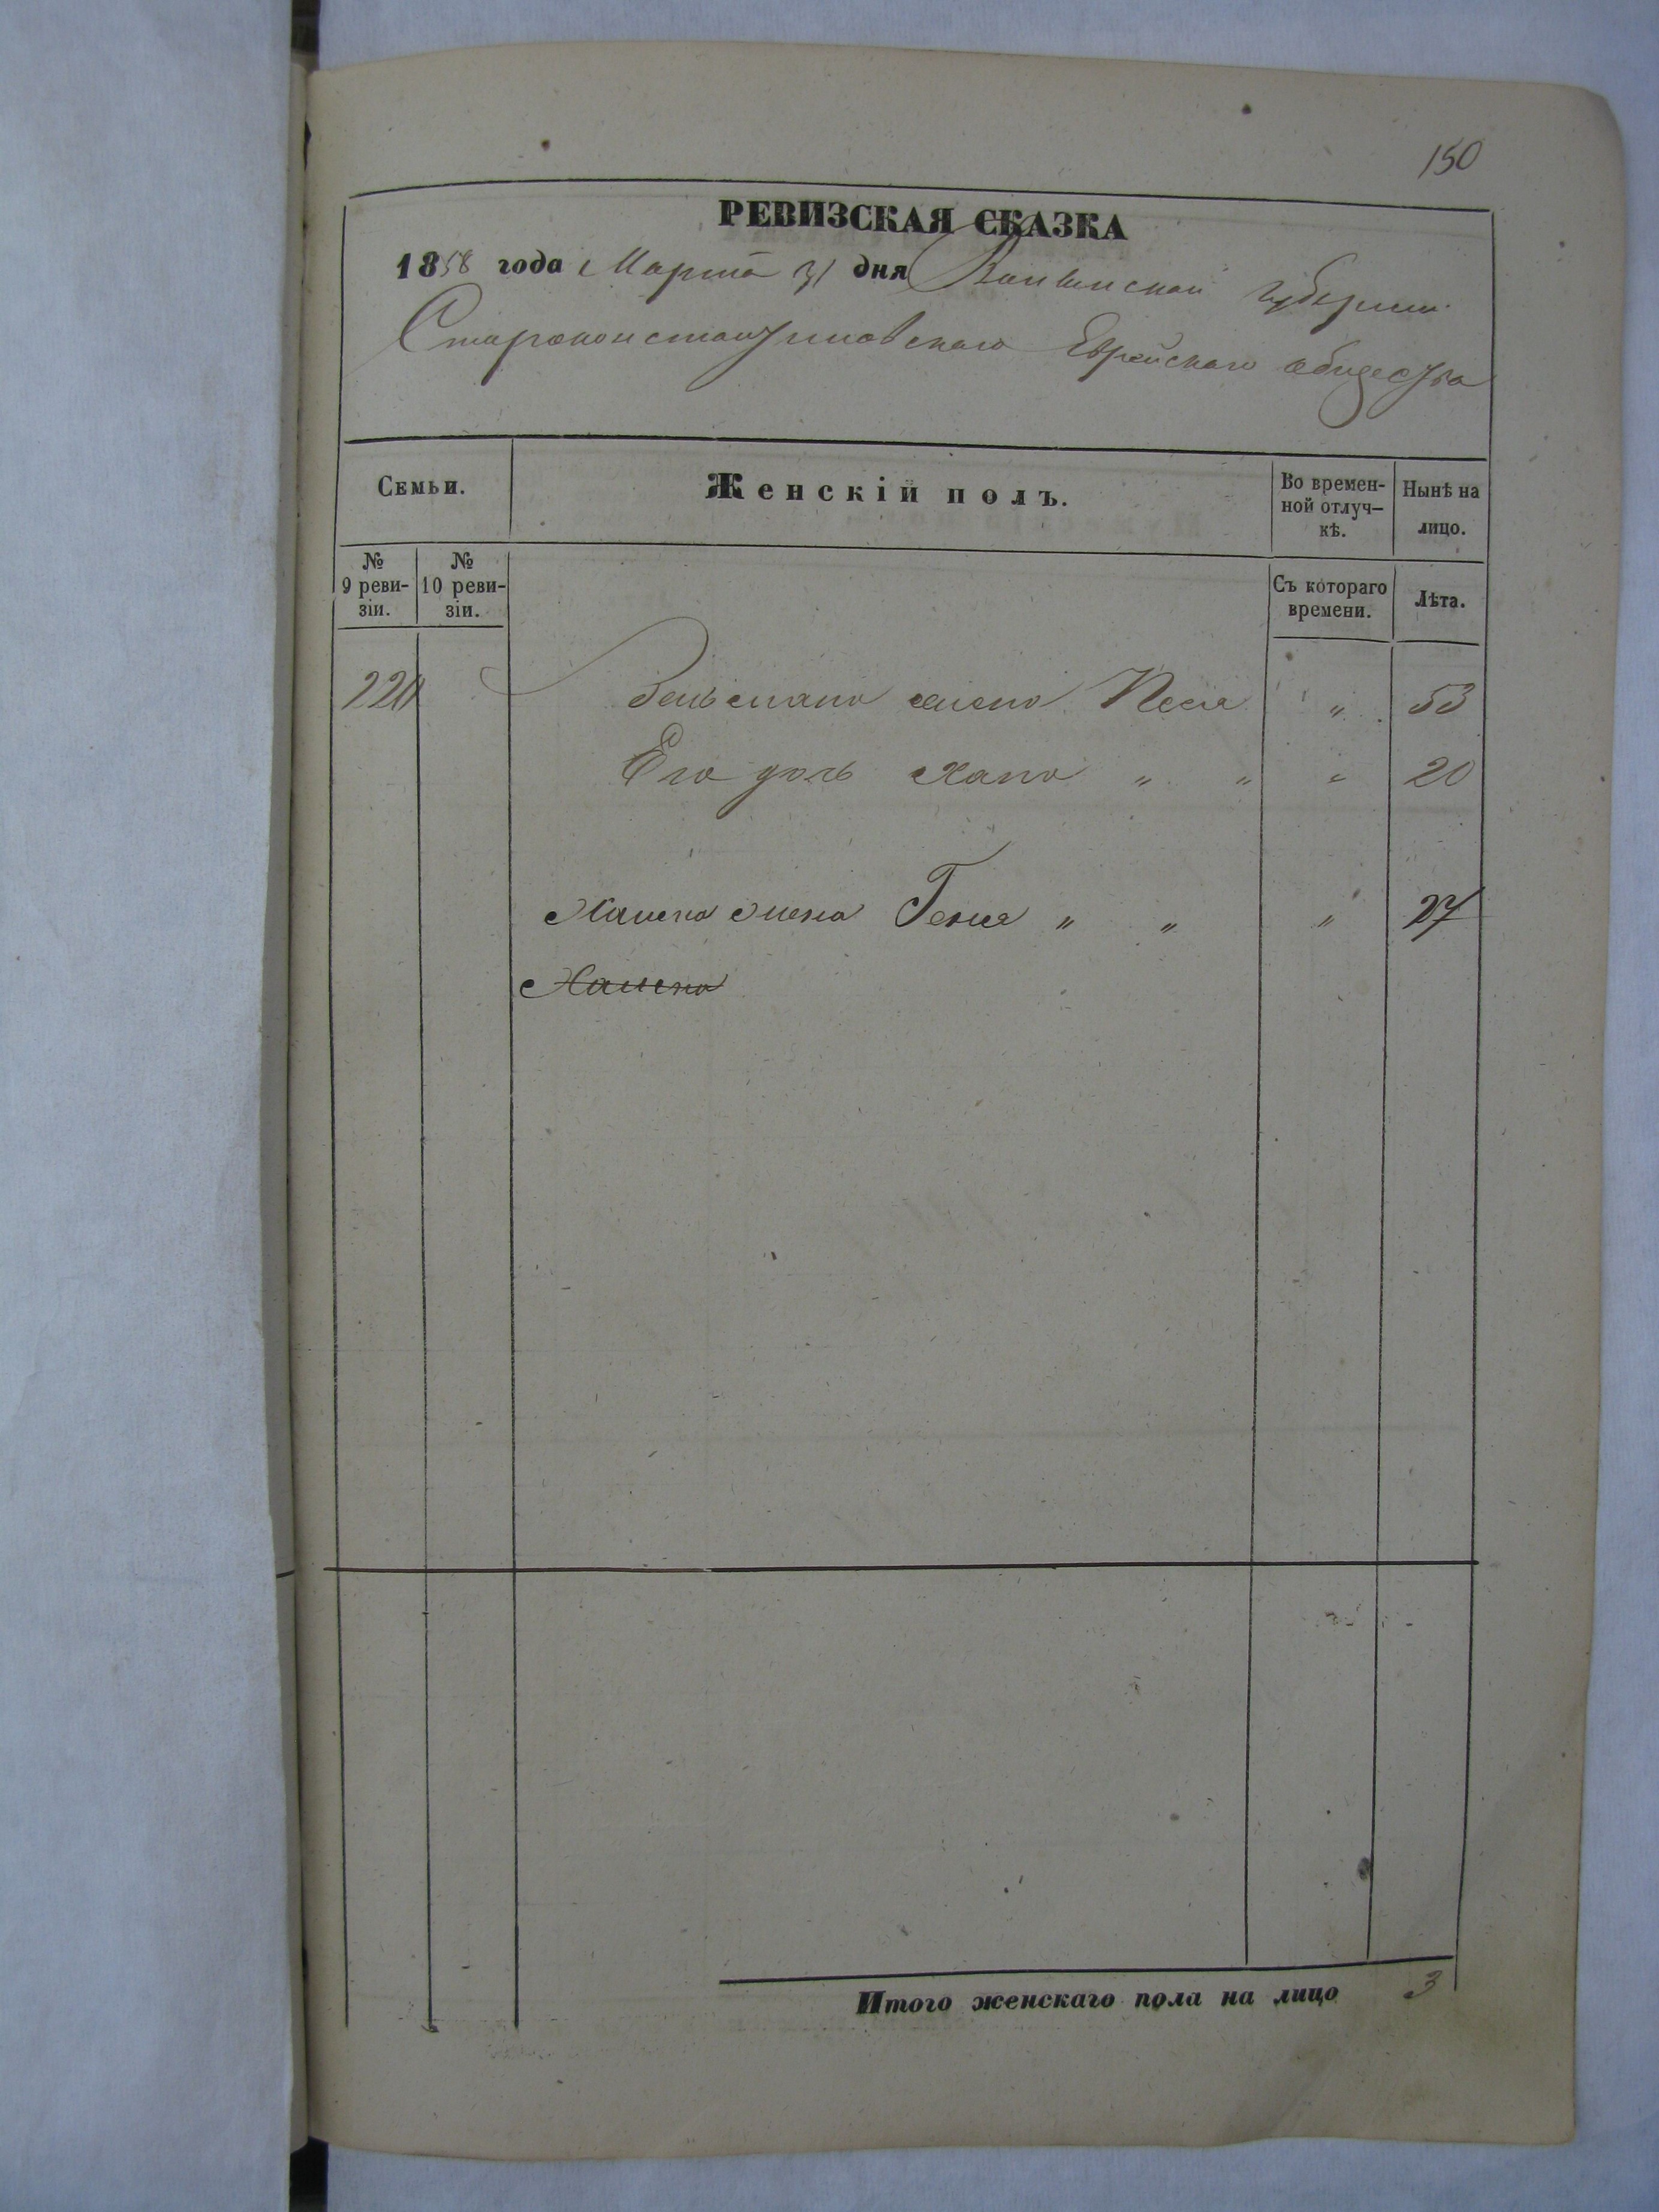 150
РЕВИЗСКАЯ СКАЗКА
1858 года Марта 31 дня Волынской губернии
Староконстантиновскаго Еврейскаго общества
Семьи.
Женскій полъ.
Во времен-
ной отлуч-
кѣ.
Нынѣ на
лицо.
№
9 реви-
зіи.
№
10 реви-
зіи.
Съ котораго
времени.
Лѣта.
жена Песя „ 53
Его дочь Хана „ „ „ 20
жена Геня „ „ „ 27
Итого женскаго пола на лицо 3